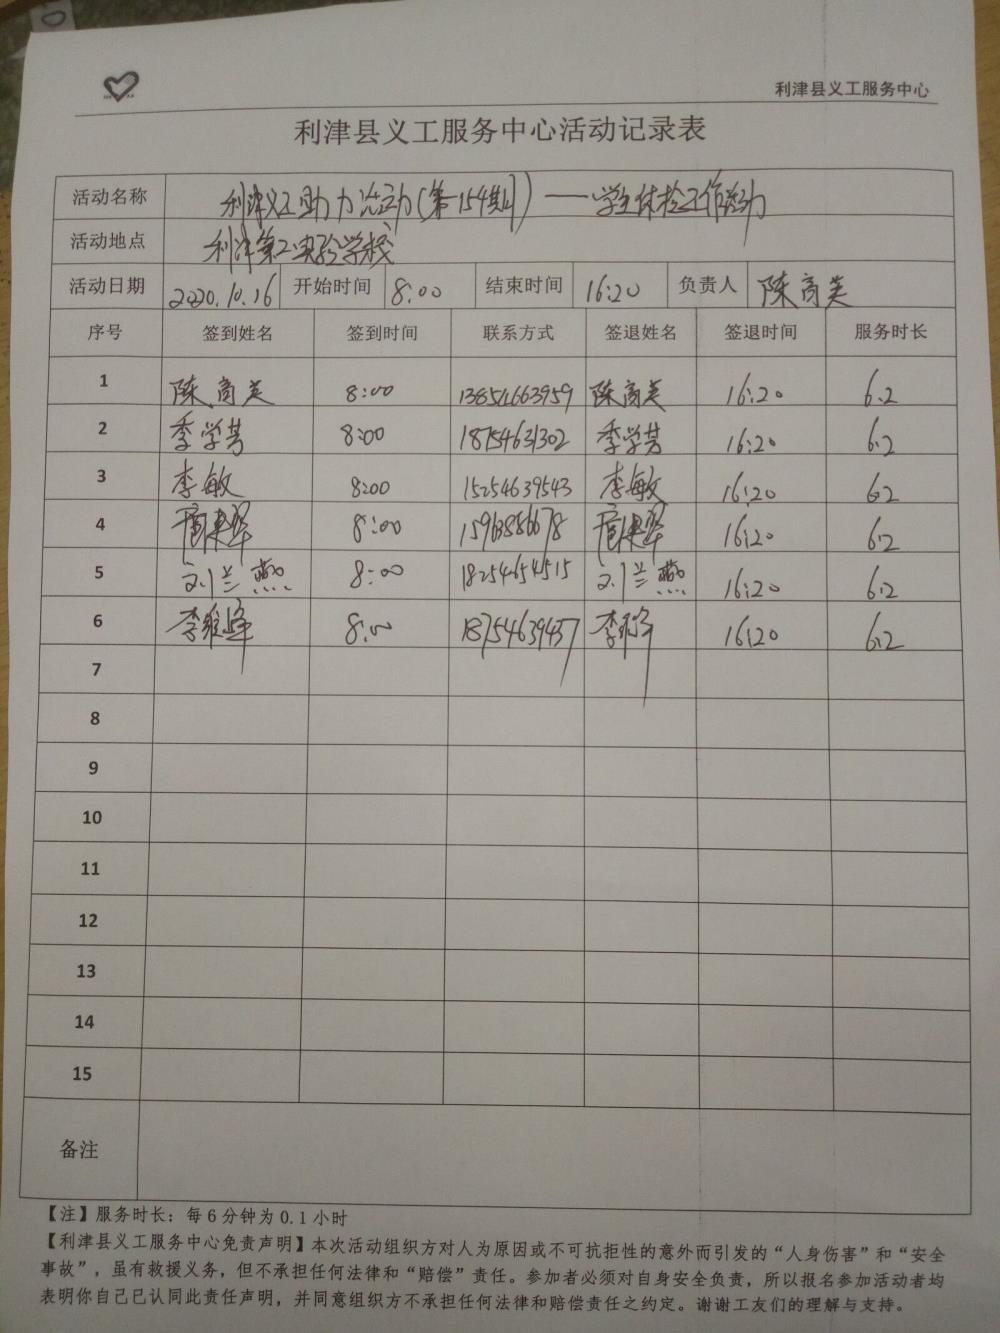 利津县义工服务中心
利津县义工服务中心活动记录表
活动名称 利津义工助力活动(第154期)——学生体检工作活动
活动地点 利津第二实验学校
活动日期 2020.10.16 开始时间 8:00 结束时间 16:20 负责人 陈商英
序号 签到姓名 签到时间 联系方式 签退姓名 签退时间 服务时长
1 陈商英 8:00 13854663959 陈商英 16:20 6.2
2 季学芳 8:00 18754631302 季学芳 16:20 6.2
3 李敏 8:00 15254639543 李敏 16:20 6.2
4 8:00 15963856678 16:20 6.2
5 刘兰燕 8:00 18254654515 刘兰燕 16:20 6.2
6 李维峰 8:00 18754639437 16:20 6.2
7
8
9
10
11
12
13
14
15
备注
【注】服务时长：每6分钟为0.1小时
【利津县义工服务中心免责声明】本次活动组织方对人为原因或不可抗拒性的意外而引发的“人身伤害”和“安全
事故”，虽有救援义务，但不承担任何法律和“赔偿”责任。参加者必须对自身安全负责，所以报名参加活动者均
表明你自己已认同此责任声明，并同意组织方不承担任何法律和赔偿责任之约定。谢谢工友们的理解与支持。